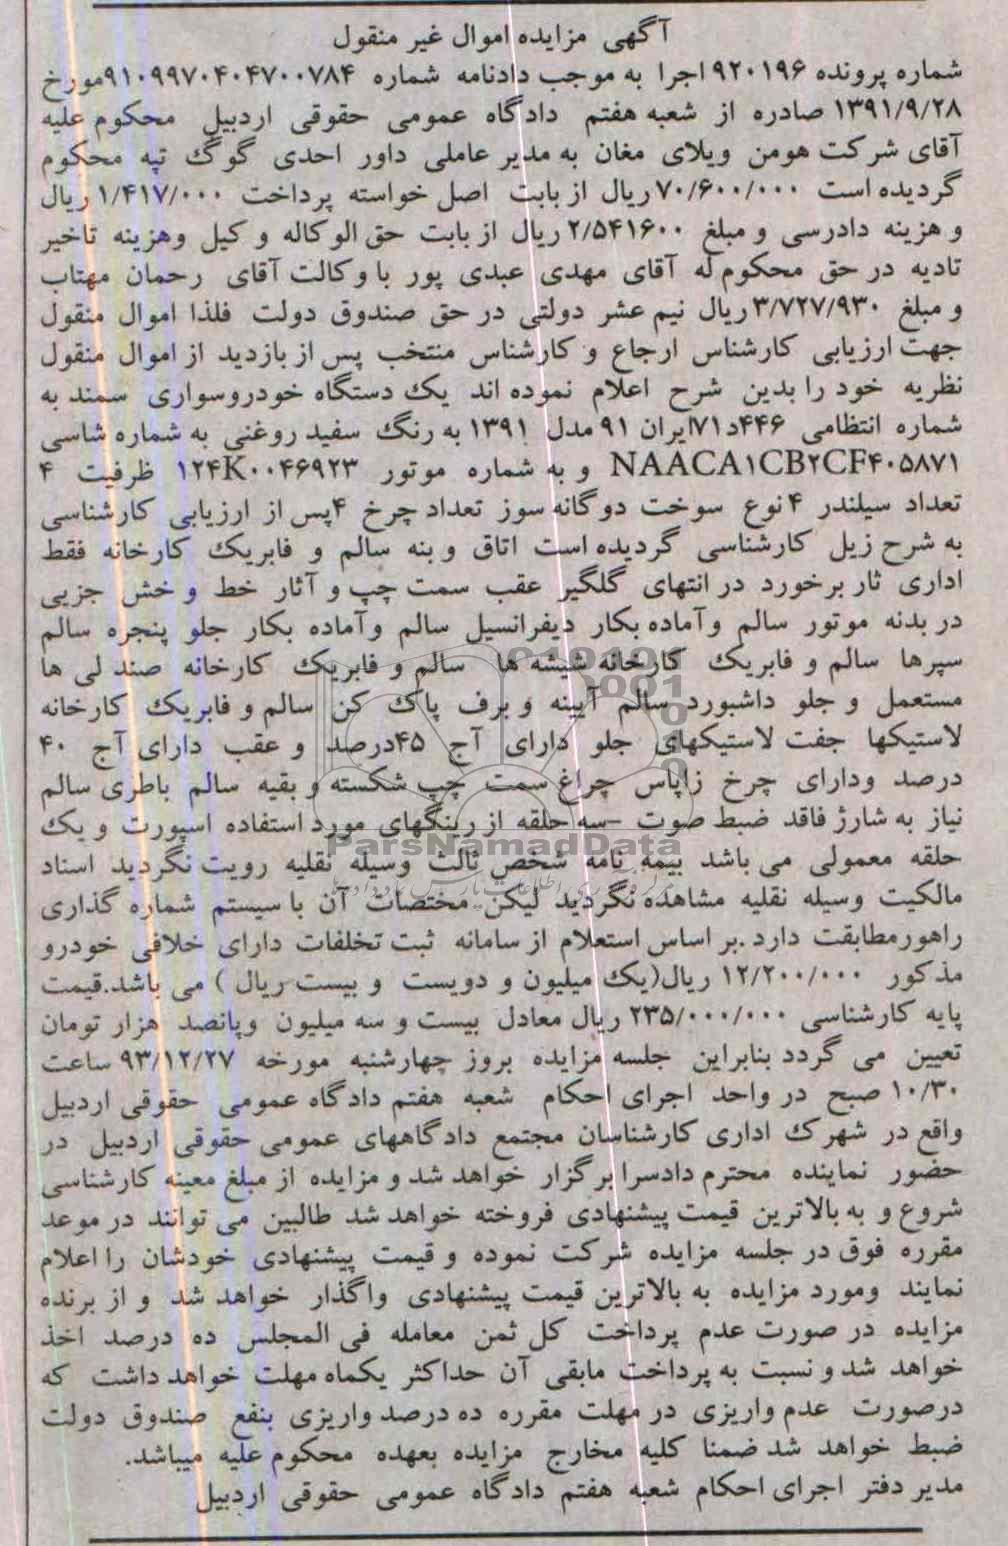 آگهی مزایده اموال غیر منقول
شماره پرونده ۹۲۰۱۹۶ اجرا به موجب دادنامه شماره ۹۱۰۹۹۷۰۴۰۴۷۰۰۷۸۴مورخ
۱۳۹۱/۹/۲۸ صادره از شعبه هفتم دادگاه عمومی حقوقی اردبیل محکوم علیه
آقای شرکت هومن ویلای مغان به مدیر عاملی داور احدی گوگ تپه محکوم
گردیده است ۷۰/۶۰۰/۰۰۰ ریال از بابت اصل خواسته پرداخت ۱/۴۱۷/۰۰۰ ریال
و هزینه دادرسی و مبلغ ۲/۵۴۱۶۰۰ ریال از بابت حق الوکاله وکیل وهزینه تاخیر
تادیه در حق محکوم له آقای مهدی عبدی پور با وکالت آقای رحمان مهتاب
و مبلغ ۳/۷۲۷/۹۳۰ ریال نیم عشر دولتی در حق صندوق دولت فلذا اموال منقول
جهت ارزیابی کارشناس ارجاع و کارشناس منتخب پس از بازدید از اموال منقول
نظریه خود را بدین شرح اعلام نموده اند یک دستگاه خودروسواری سمند به
شماره انتظامی ۴۴۶د۷۱ایران ۹۱ مدل ۱۳۹۱ به رنگ سفید روغنی به شماره شاسی
NAACA۱CB۲CF۴۰۵۸۷۱ و به شماره موتور ۱۲۴K۰۰۴۶۹۲۳ ظرفیت ۴
تعداد سیلندر ۴ نوع سوخت دوگانه سوز تعداد چرخ ۴پس از ارزیابی کارشناسی
به شرح زیل کارشناسی گردیده است اتاق و بنه سالم و فابریک کارخانه فقط
اداری ثار برخورد در انتهای گلگیر عقب سمت چپ و آثار خط و خش جزیی
در بدنه موتور سالم وآماده بکار دیفرانسیل سالم وآماده بکار جلو پنجره سالم
سپرها سالم و فابریک کارخانه شیشه ها سالم و فابریک کارخانه صند لی ها
مستعمل و جلو داشبورد سالم آیینه و برف پاک کن سالم و فابریک کارخانه
لاستیکها جفت لاستیکهای جلو دارای آج ۴۵درصد و عقب دارای آج ۴۰
درصد ودارای چرخ زاپاس چراغ سمت چپ شکسته و بقیه سالم باطری سالم
نیاز به شارژ فاقد ضبط صوت –سه حلقه از رینگهای مورد استفاده اسپورت و یک
ParsNamadData
حلقه معمولی می باشد بیمه نامه شخص ثالث وسیله نقلیه رویت نگردید اسناد
مالکیت وسیله نقلیه مشاهده نگردید لیکن مختصات آن با سیستم شماره گذاری
راهورمطابقت دارد .بر اساس استعلام از سامانه ثبت تخلفات دارای خلافی خودرو
مذکور ۱۲/۲۰۰/۰۰۰ ریال(یک میلیون و دویست و بیست ریال ) می باشد.قیمت
پایه کارشناسی ۲۳۵/۰۰۰/۰۰۰ ریال معادل بیست و سه میلیون وپانصد هزار تومان
تعیین می گردد بنابراین جلسه مزایده بروز چهارشنبه مورخه ۹۳/۱۲/۲۷ ساعت
۱۰/۳۰ صبح در واحد اجرای احکام شعبه هفتم دادگاه عمومی حقوقی اردبیل
واقع در شهرک اداری کارشناسان مجتمع دادگاههای عمومی حقوقی اردبیل در
حضور نماینده محترم دادسرا برگزار خواهد شد و مزایده از مبلغ معینه کارشناسی
شروع و به بالاترین قیمت پیشنهادی فروخته خواهد شد طالبین می توانند در موعد
مقرره فوق در جلسه مزایده شرکت نموده و قیمت پیشنهادی خودشان را اعلام
نمایند ومورد مزایده به بالاترین قیمت پیشنهادی واگذار خواهد شد و از برنده
مزایده در صورت عدم پرداخت کل ثمن معامله فی المجلس ده درصد اخذ
خواهد شد و نسبت به پرداخت مابقی آن حداکثر یکماه مهلت خواهد داشت که
درصورت عدم واریزی در مهلت مقرره ده درصد واریزی بنفع صندوق دولت
ضبط خواهد شد ضمنا کلیه مخارج مزایده بعهده محکوم علیه میباشد.
مدیر دفتر اجرای احکام شعبه هفتم دادگاه عمومی حقوقی اردبیل